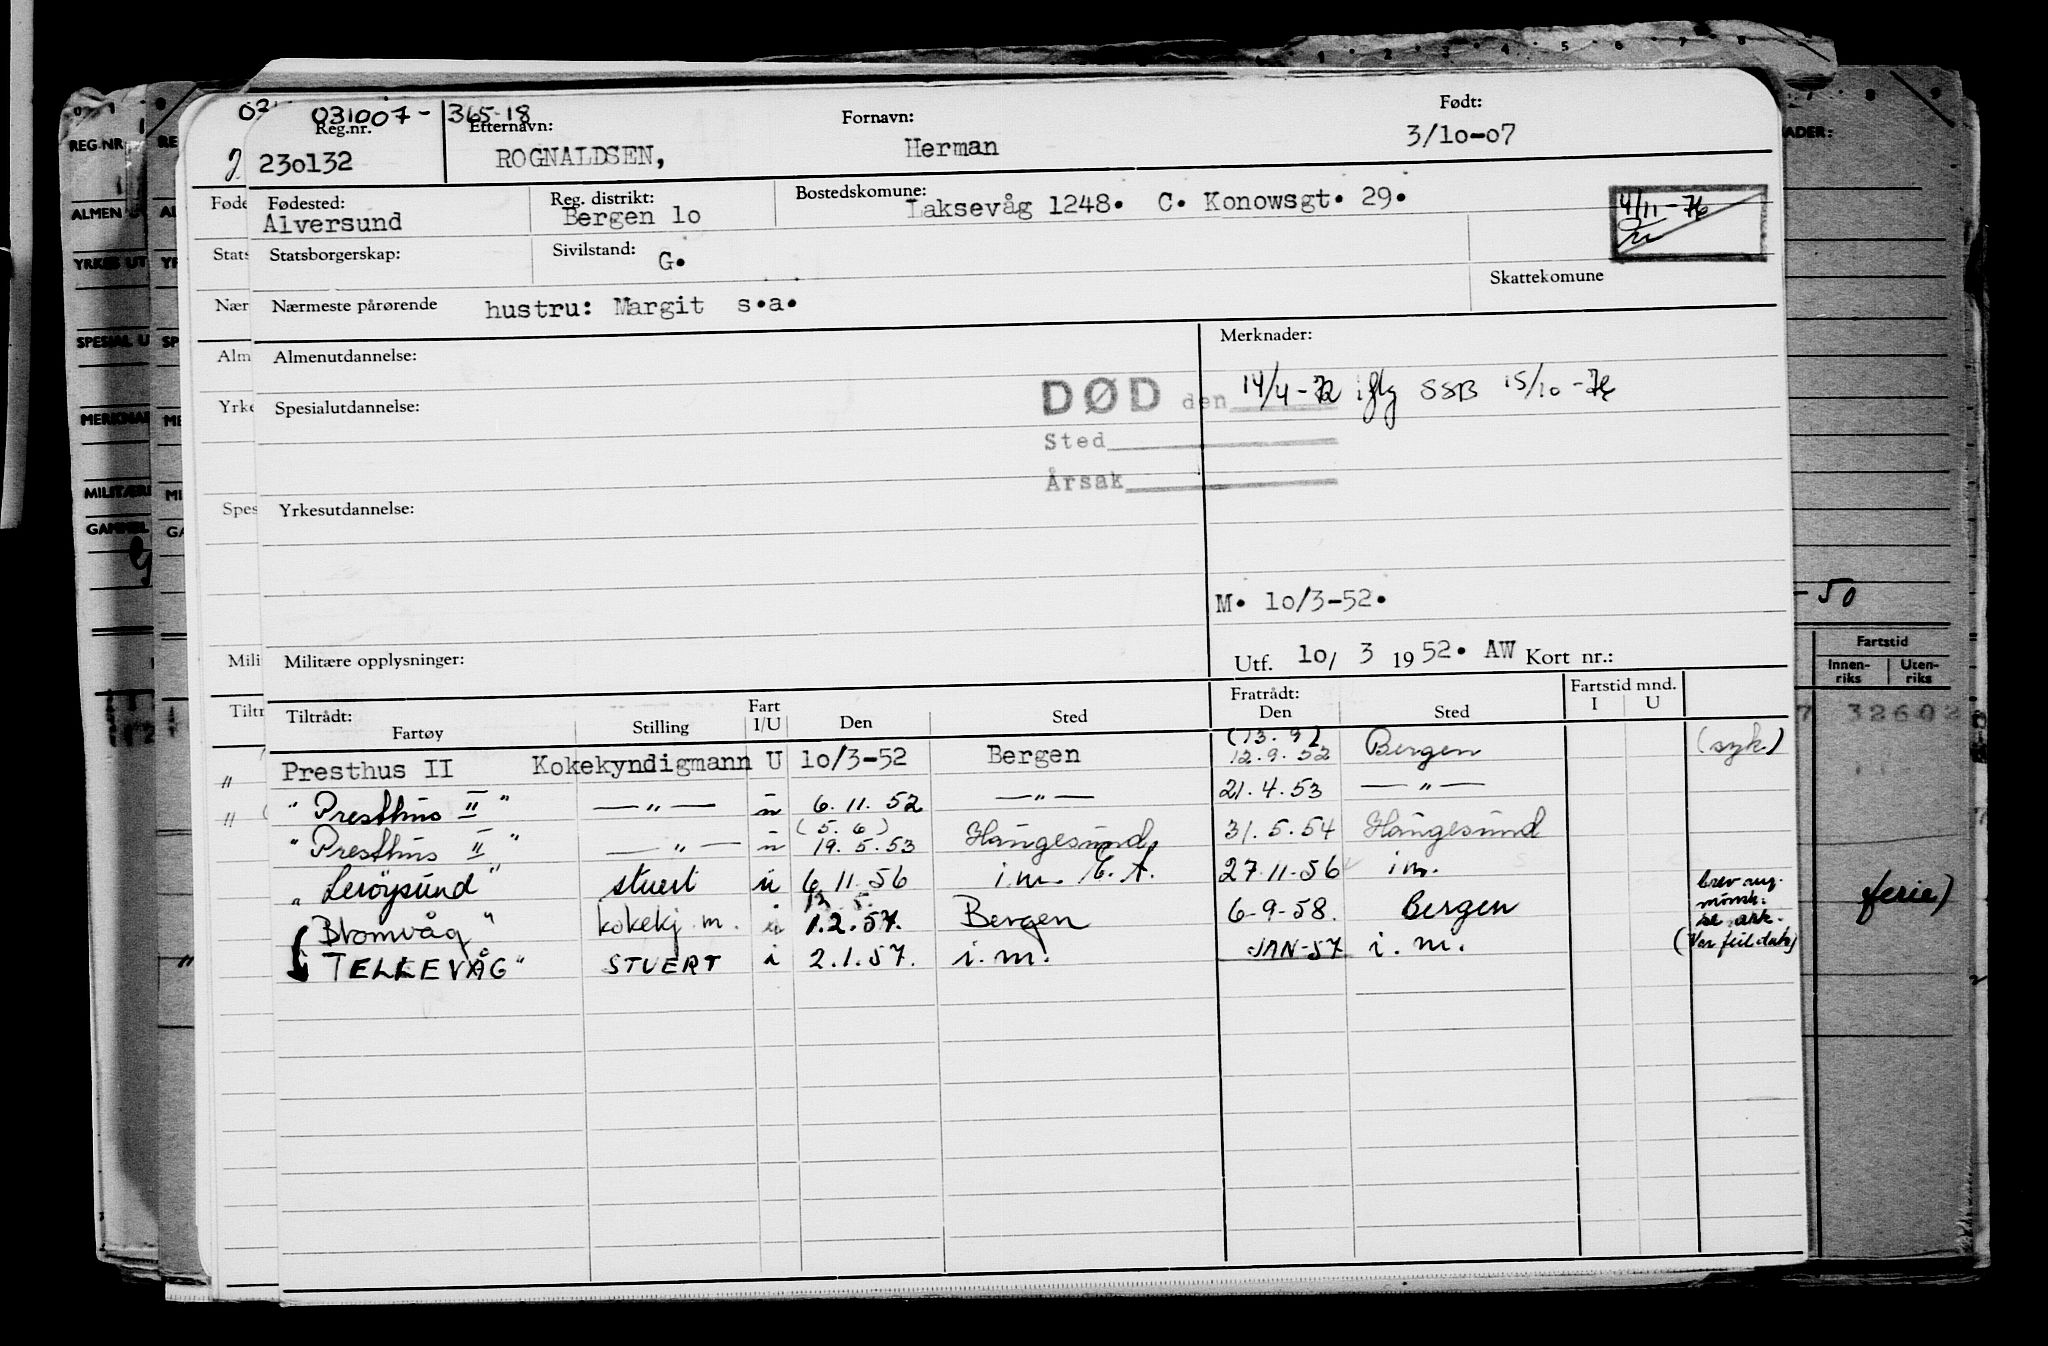 031007-36518
Reg.nr. Etternavn: Fornavn: Født:
230132 ROGNALDSEN, Herman 3/10-07
Fødested: Reg. distrikt: Bostedskomune:
Alversund Bergen 10 Laksevåg 1248. C. Konowsgt. 29.
4/11-76
Statsborgerskap: Sivilstand: G. Skattekomune
Nærmeste pårørende hustru: Margit s.a.
Almenutdannelse: Merknader:
Spesialutdannelse: DØD den 14/4-72 iflg SSB 15/10-76
Sted
Årsak
Yrkesutdannelse:
M. 10/3-52.
Militære opplysninger: Utf. 10/ 3 1952. AW Kort nr.:
Tiltrådt: Fratrådt: Fartstid mnd.
Fartøy Stilling Fart I/U Den Sted Den Sted I U
(13.9)
Presthus II Kokekyndigmann U 10/3-52 Bergen 12.9.52 Bergen (syk)
"Presthus II" —"— u 6.11.52 —"— 21.4.53 —"—
(5.6)
"Presthus II" —"— u 19.5.53 Haugesund 31.5.54 Haugesund
"Lerøysund" stuert u 6.11.56 i.m. 27.11-56 i m.
Blomvåg" kokekj.m. 1.2.57. Bergen 6-9-58. Bergen
"TELLEVÅG" STUERT i 2.1.57. i.m. JAN-57 i.m. (Var feil dato)
REG.NR
ALMEN
YRKES UT
SPESIAL U
MERKNAD
MILITÆRE
GAMMEL
-50
Fartstid
Innenriks Utenriks
32602
ferie)